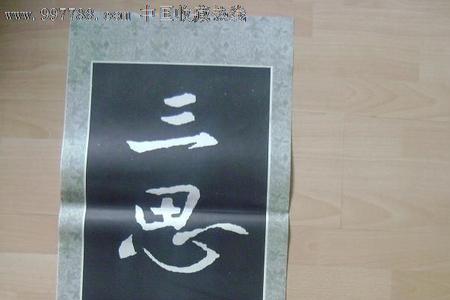 www.997788.com 中国收藏热线
三
思